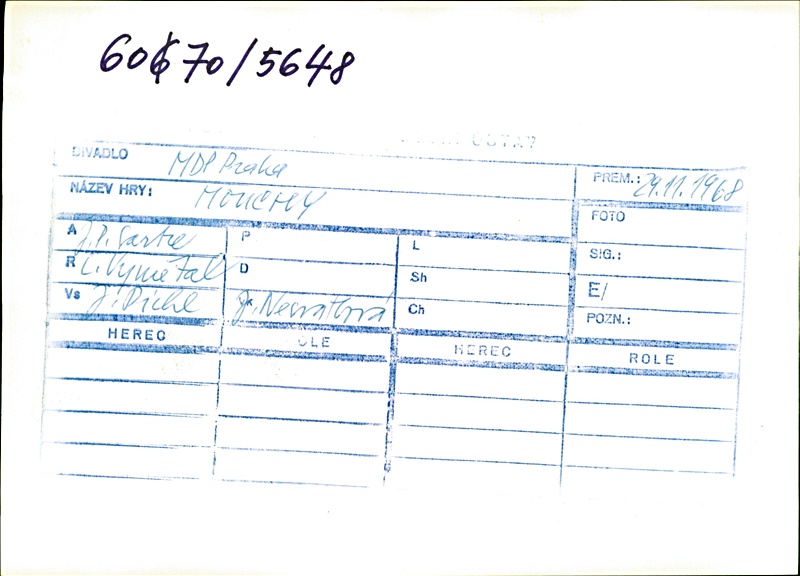 60670/5648
DIVADLO MDP Praha PREM.: 29.11.1968
NÁZEV HRY: MOUCHY
FOTO
A J.P. Sartre P L SIG.:
R L. Vymětal D Sh E/
Vs J. Pichl K J. Nesvatbová Ch POZN.:
HEREC OLE HEREC ROLE